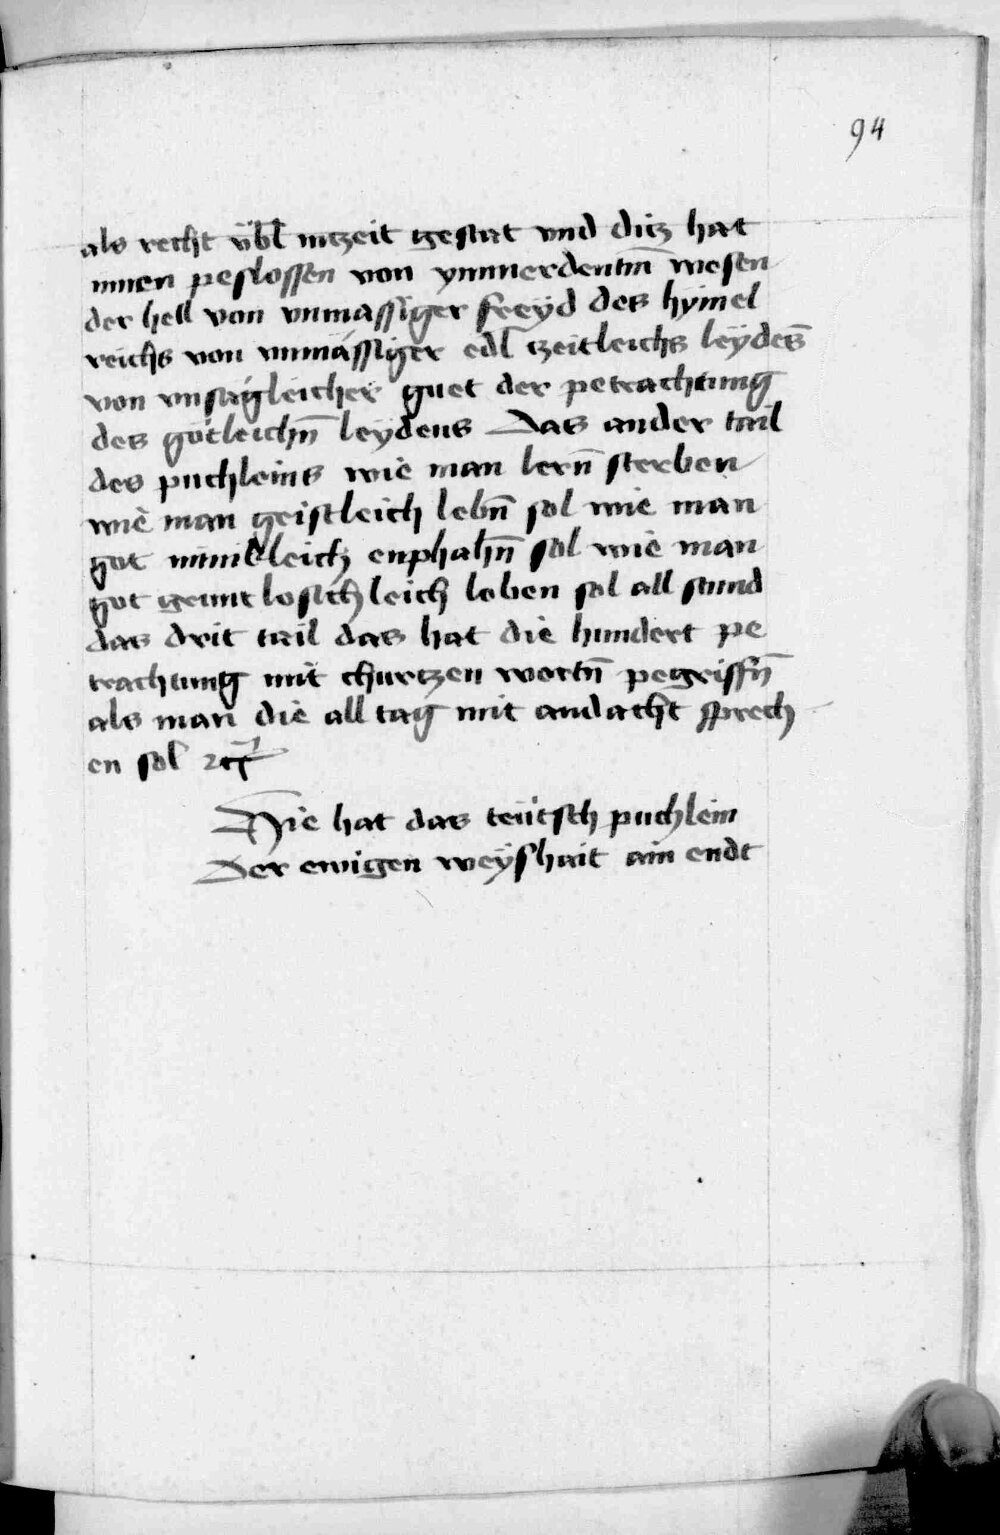 94
als recht v̈bl̄ ıntzeit gestat vnd ditz hat
innen peslossen von ymmerdentm̄ wesen
der hell von vnmassiger freÿd des hÿmel
reichs von vnmässiger edl zeitleichs leÿdes̄
von vnsägleicher guet der petrachtung
des götleichn̄ leÿdens Das ander tail
des puchleins wie man lern̄ sterben
wie man geistleich lebn̄ sol wie man
got mineleich enphahn̄ sol wie man
got geuntlostchleich loben sol all stund
das drit tail das hat die hundert pe
trachtung mit churtzen wortn̄ pegriffn̄
als man die all tag mit andacht sprech
en sol
Hie hat das teütsch puchlein
Der ewigen weÿshait ain endt